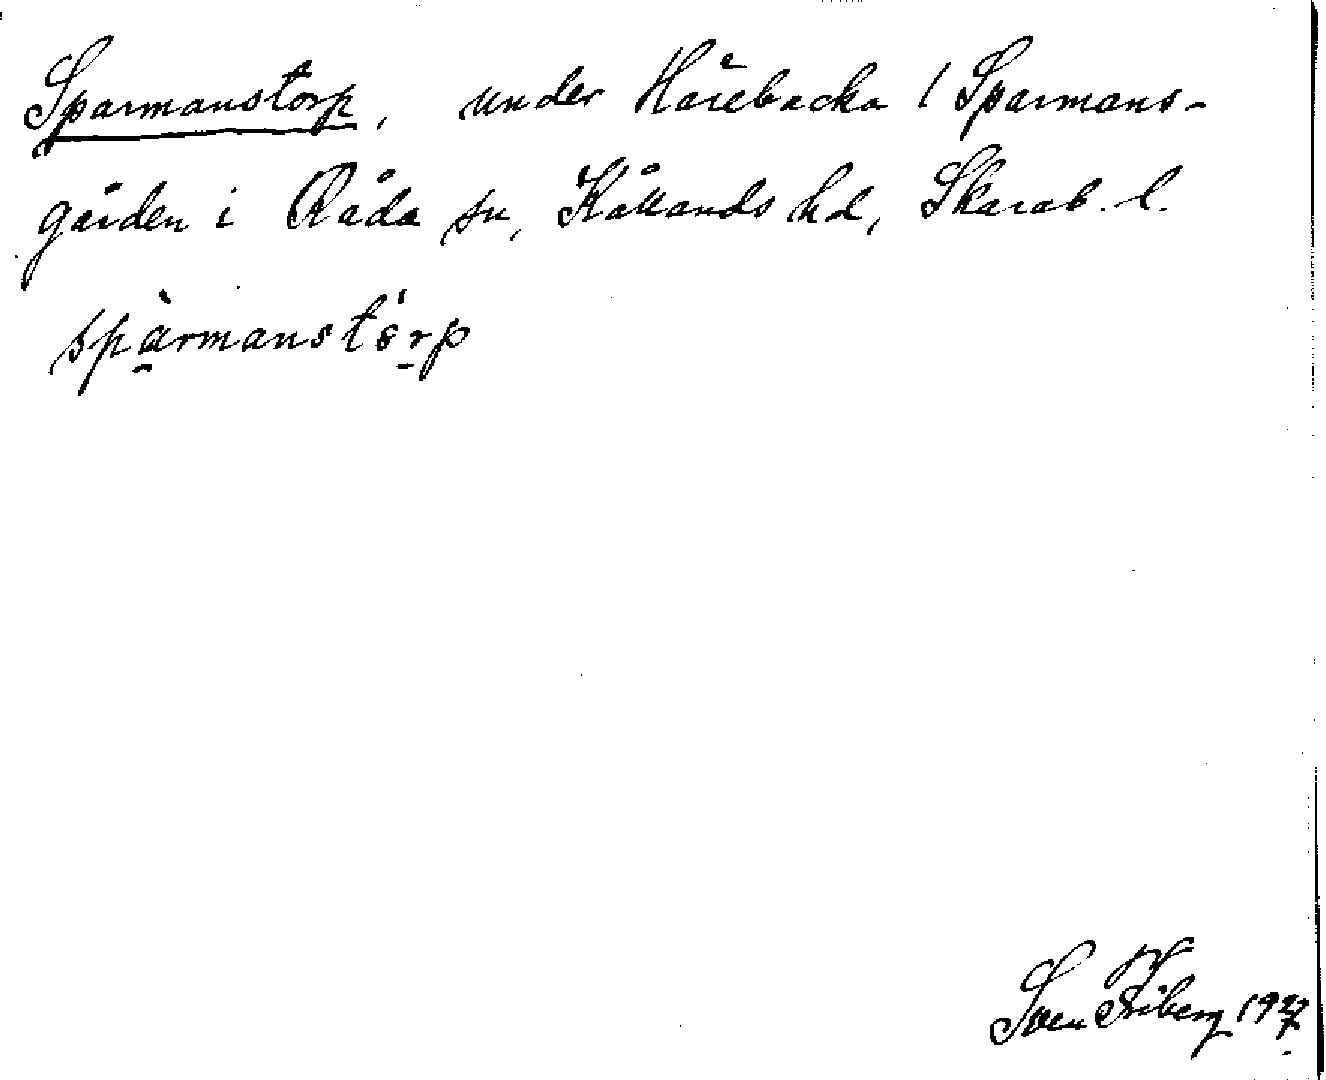 Sparmanstorp, under Härebacka / Sparmans-
gården i Råda sn, Kållands hd, Skarab. l.
spàrmanstórp
Sven Friberg 1927